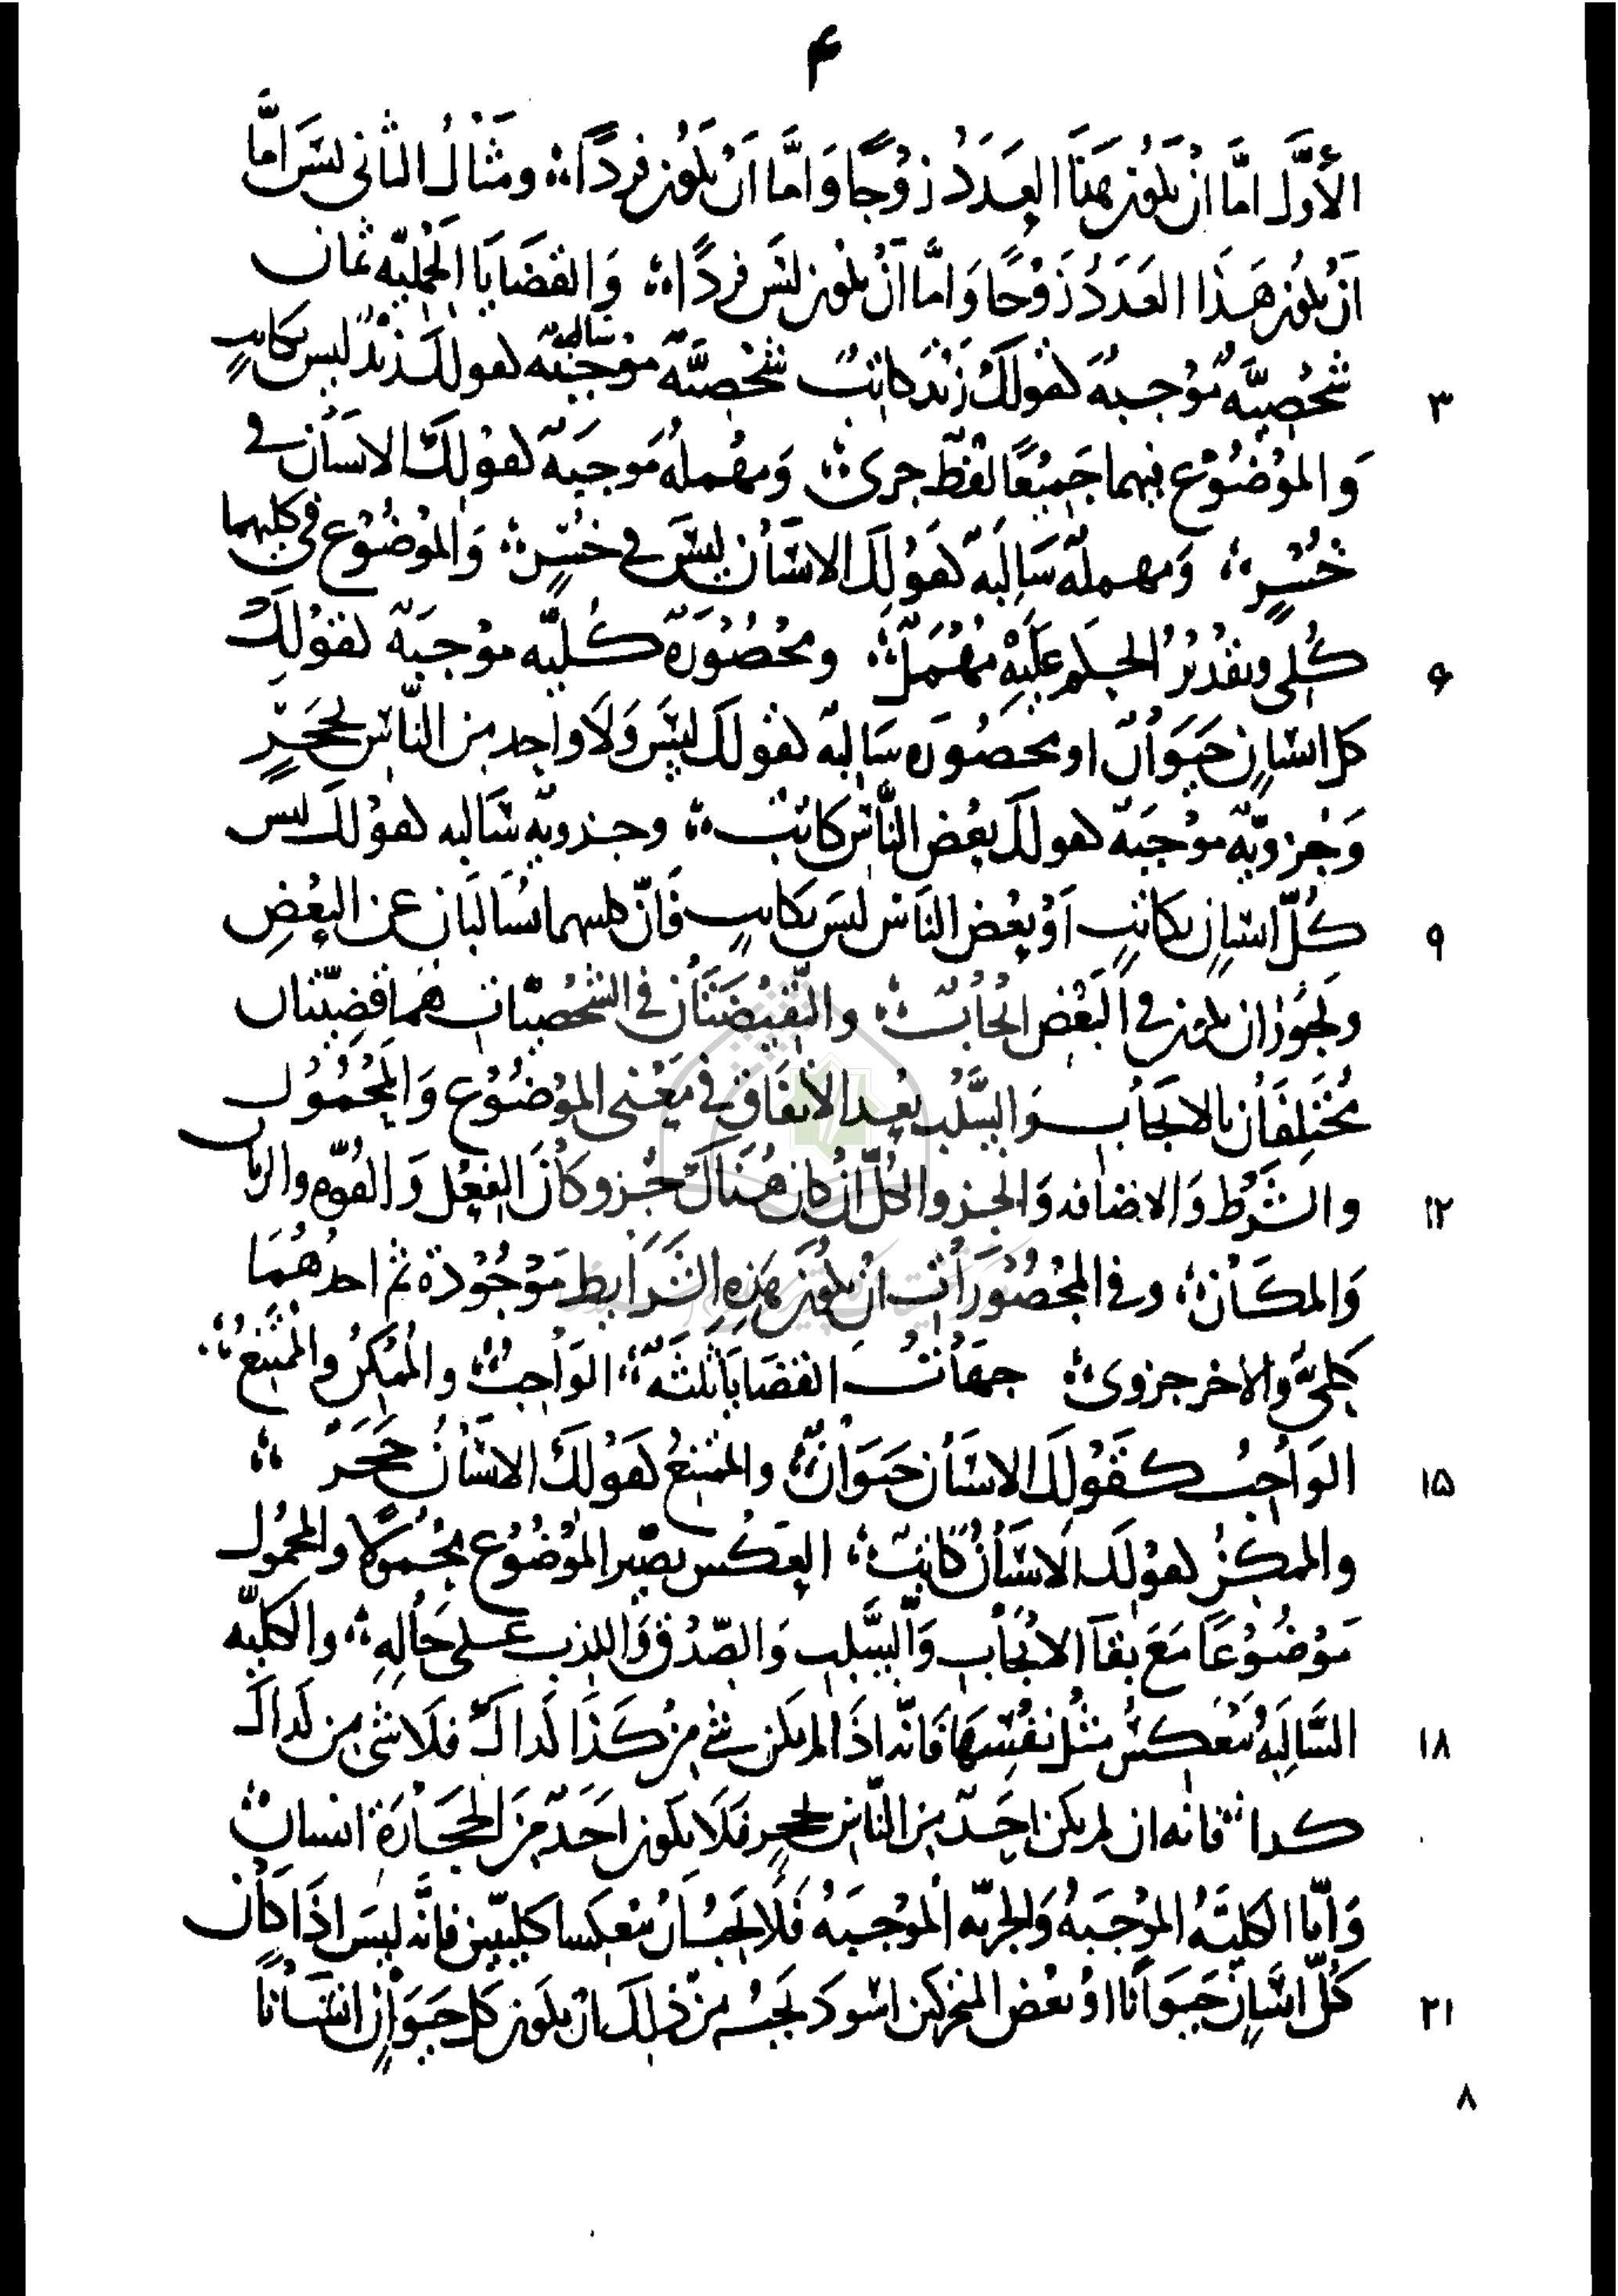 ۴
الأوَّل امَّا اَنْ يكُون هَذَا العَدَدُ زَوْجًا وَامَّا اَنْ يَكُون فردًا ومثَالُ الثَّانى ليسَ امَّا
اَنْ يكُون هَذا العَدَدُ زَوْجًا وَامَّا اَنْ يكون ليسَ فردًا وَالقضَايَا الحَمليّه ثمان
شخصِيَّه مُوْجبهٌ كقولكَ زيدٌ كاتبٌ شخصيَّه موجبَه سالبة كقولكَ زيدٌ ليس بكاتبٍ
۳
وَالموْضُوْع فيهما جَميْعًا لفظ جزىّ وَمهْملهُ مَوجبَهٌ كقوْلكَ الانسَانُ فى
خُسْرٍ وَمهملهٌ سَالبَه كقَوْلِكَ الانسَانُ ليسَ فى خُسْرٍ وَالموْضُوْع فى كليهما
كُلى وتقْديْرُ الحكم عَلَيْهِ مُهْمَلٌ ومحْصُوْرَهٌ كُليّه موْجبَهٌ كقوْلكَ
۶
كل انسَانٍ حَيَوَانٌ او محصُورَه سَالبهٌ كقولكَ ليسَ وَلَا واحِد من النَّاسِ بحَجَرٍ
وَجُزويّهٌ موْجبَهٌ كقولكَ بعْض النَّاسِ كاتبٌ وجزويه سَالبه كقوْلكَ ليس
كُلّ انسَانٍ بكاتبٍ اَوْ بعْض النَاسِ ليسَ بكاتبٍ فَانّ كليهما تسَالبَان عن البعْضِ
۹
وَيجُوزُ ان يكون فى البَعْض ايجابٌ والنّقيْضتَانِ فى الشخْصيّات هُمَا قضيّتان
تخْتَلِفَانِ بالايجَاب وَالسَّلْب بعْد الاتفَاق فى مَعْنى الموْضُوْع وَالمحْمُوْل
والشَّرْط وَالاضافه وَالجزو والكلّ ان كان هُنَاكَ جُزو وكُلّ وَالفِعْل وَالقُوّه والزمان
۱۲
وَالمكَان وفى المحْصُوْرَات ان يكُون هَذِهِ الشّرَايط مَوْجُوْدة ثم احدُهُمَا
كلىٌّ والاخر جزوىّ جهَاتُ القضَايَا ثلثَهٌ الوَاجبُ والمُمْكِنُ والممْتنعُ
الوَاجبُ كقَوْلكَ الانسَان حَيَوَانٌ والممتنعُ كقَوْلكَ الانسَانُ حَجَرٌ
۱۵
والممكنُ كقوْلكَ الانسَانُ كاتِبٌ العَكْس تصْيير الموْضُوْع محْمولًا والمحْمُول
مَوْضُوْعًا مَعَ بقَآ الايجَاب وَالسَّلب وَالصّدْق وَالكذب على حَالهِ والكليّه
السَّالِبه تنعَكسُ مثْل نفْسهَا فَانّه اذَا لم يكن شئ من كَذَا كذاك فلا شئ من كذاك
۱۸
كذا فانه ان لم يكن احَدٌ منَ النّاس بحجرٍ فَلَا يكون احَدٌ منَ الحجَارَة انسان
وَامّا الكليّهُ الموْجَبهُ وَالجزيّه الموْجبَهُ فَلَا يجبُ ان تنعكسا كليتين فانَّه ليسَ اذَا كان
كُلّ انسَانٍ حَيَوَانًا اوْ بعْض المتحركين اسْود يجبُ من ذلكَ ان يكون كل حَيَوَانٍ انسَانًا
۲۱
۸